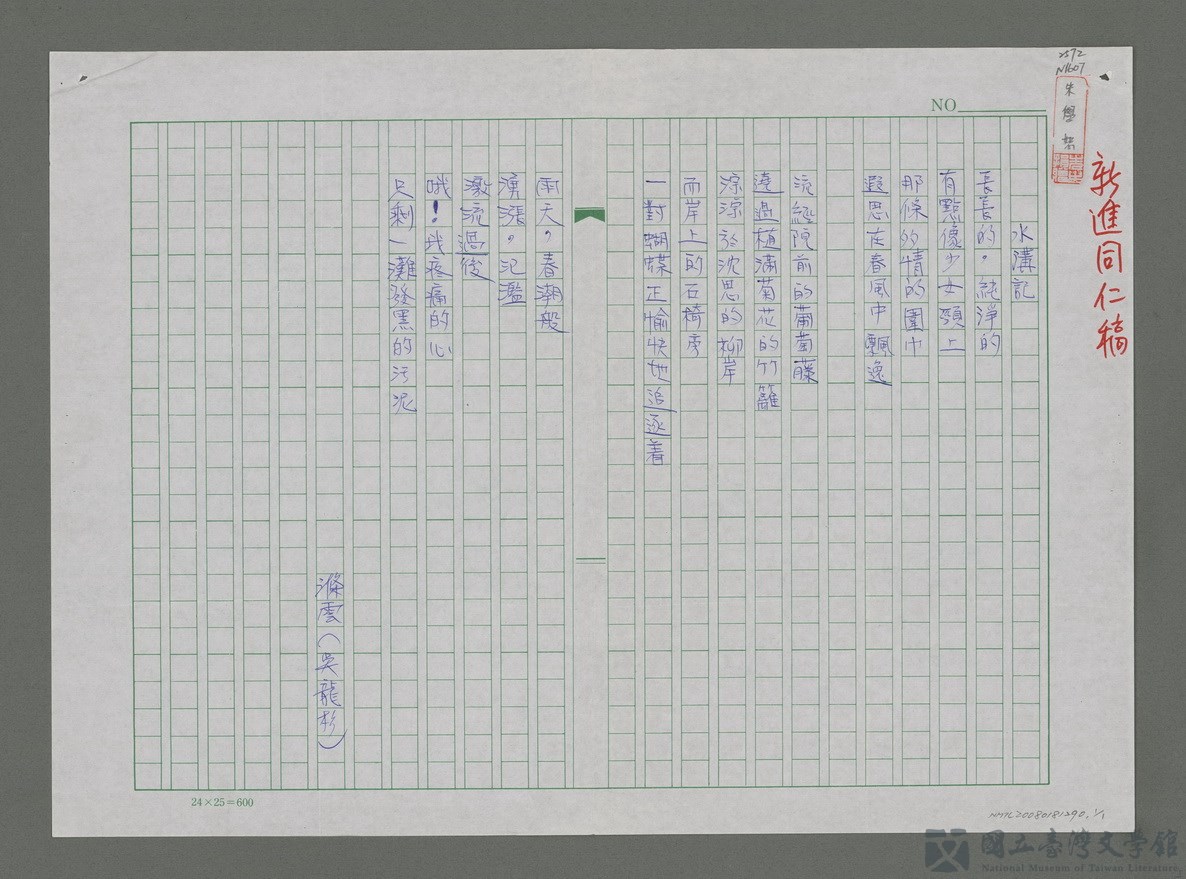 NO
2372
N1607
朱
新進同仁稿
水溝記
長長的。純淨的
有點像少女頸上
那條灼情的圍巾
遐思在春風中飄逸
流經院前的葡萄藤
遶過植滿菊花的竹籬
淙淙於沈思的柳岸
而岸上的石椅旁
一對蝴蝶正愉快地追逐着
雨天,春潮般
湧漲,氾濫
激流過後
哦!我疼痛的心
只剩一灘發黑的污泥
滌雲(吳龍杉)
24×25=600
NMTL20080181390, 1/1
國立臺灣文學館
National Museum of Taiwan Literature